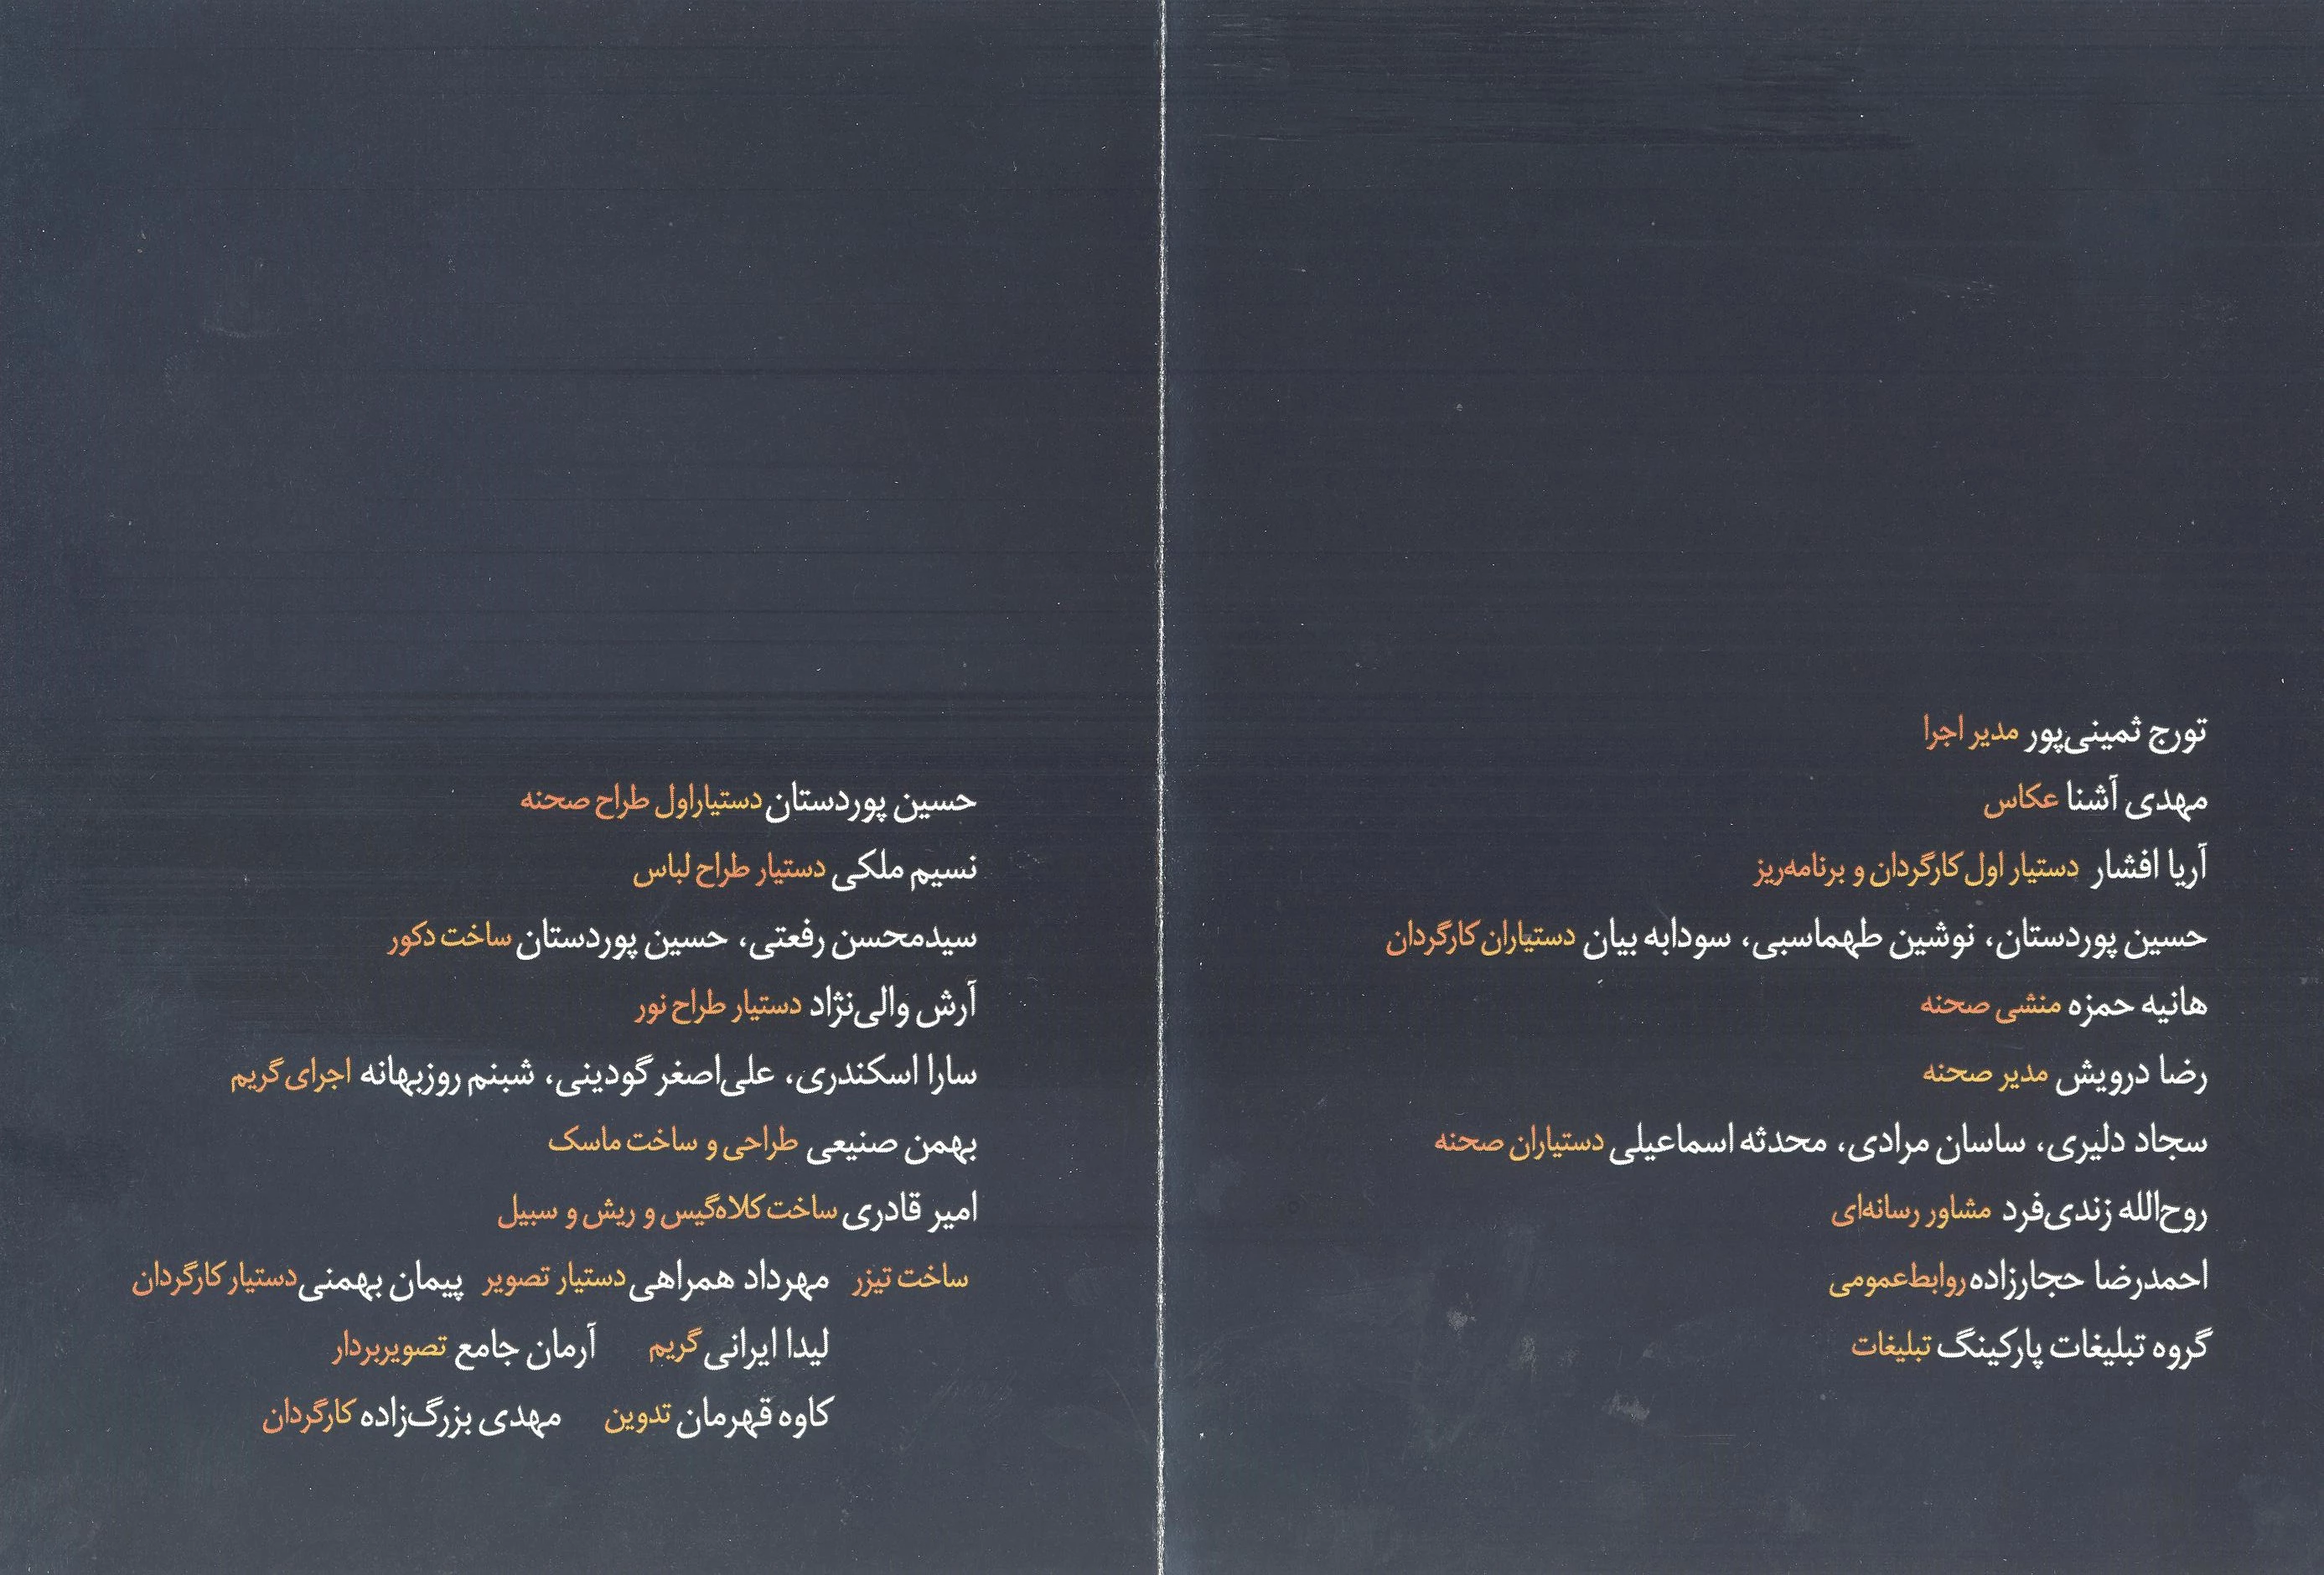 تورج ثمینی‌پور مدیر اجرا
مهدی آشنا عکاس
آریا افشار دستیار اول کارگردان و برنامه‌ریز
حسین پوردستان، نوشین طهماسبی، سودابه بیان دستیاران کارگردان
هانیه حمزه منشی صحنه
رضا درویش مدیر صحنه
سجاد دلیری، ساسان مرادی، محدثه اسماعیلی دستیاران صحنه
روح‌الله زندی‌فرد مشاور رسانه‌ای
احمدرضا حجارزاده روابط‌عمومی
گروه تبلیغات پارکینگ تبلیغات
حسین پوردستان دستیاراول طراح صحنه
نسیم ملکی دستیار طراح لباس
سیدمحسن رفعتی، حسین پوردستان ساخت دکور
آرش والی‌نژاد دستیار طراح نور
سارا اسکندری، علی‌اصغر گودینی، شبنم روزبهانه اجرای گریم
بهمن صنیعی طراحی و ساخت ماسک
امیر قادری ساخت کلاه‌گیس و ریش و سبیل
ساخت تیزر مهرداد همراهی دستیار تصویر پیمان بهمنی دستیار کارگردان
لیدا ایرانی گریم آرمان جامع تصویربردار
کاوه قهرمان تدوین مهدی بزرگ‌زاده کارگردان